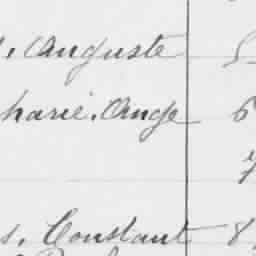 , Auguste 5
harie. Ange 6
7
s, Constant 8